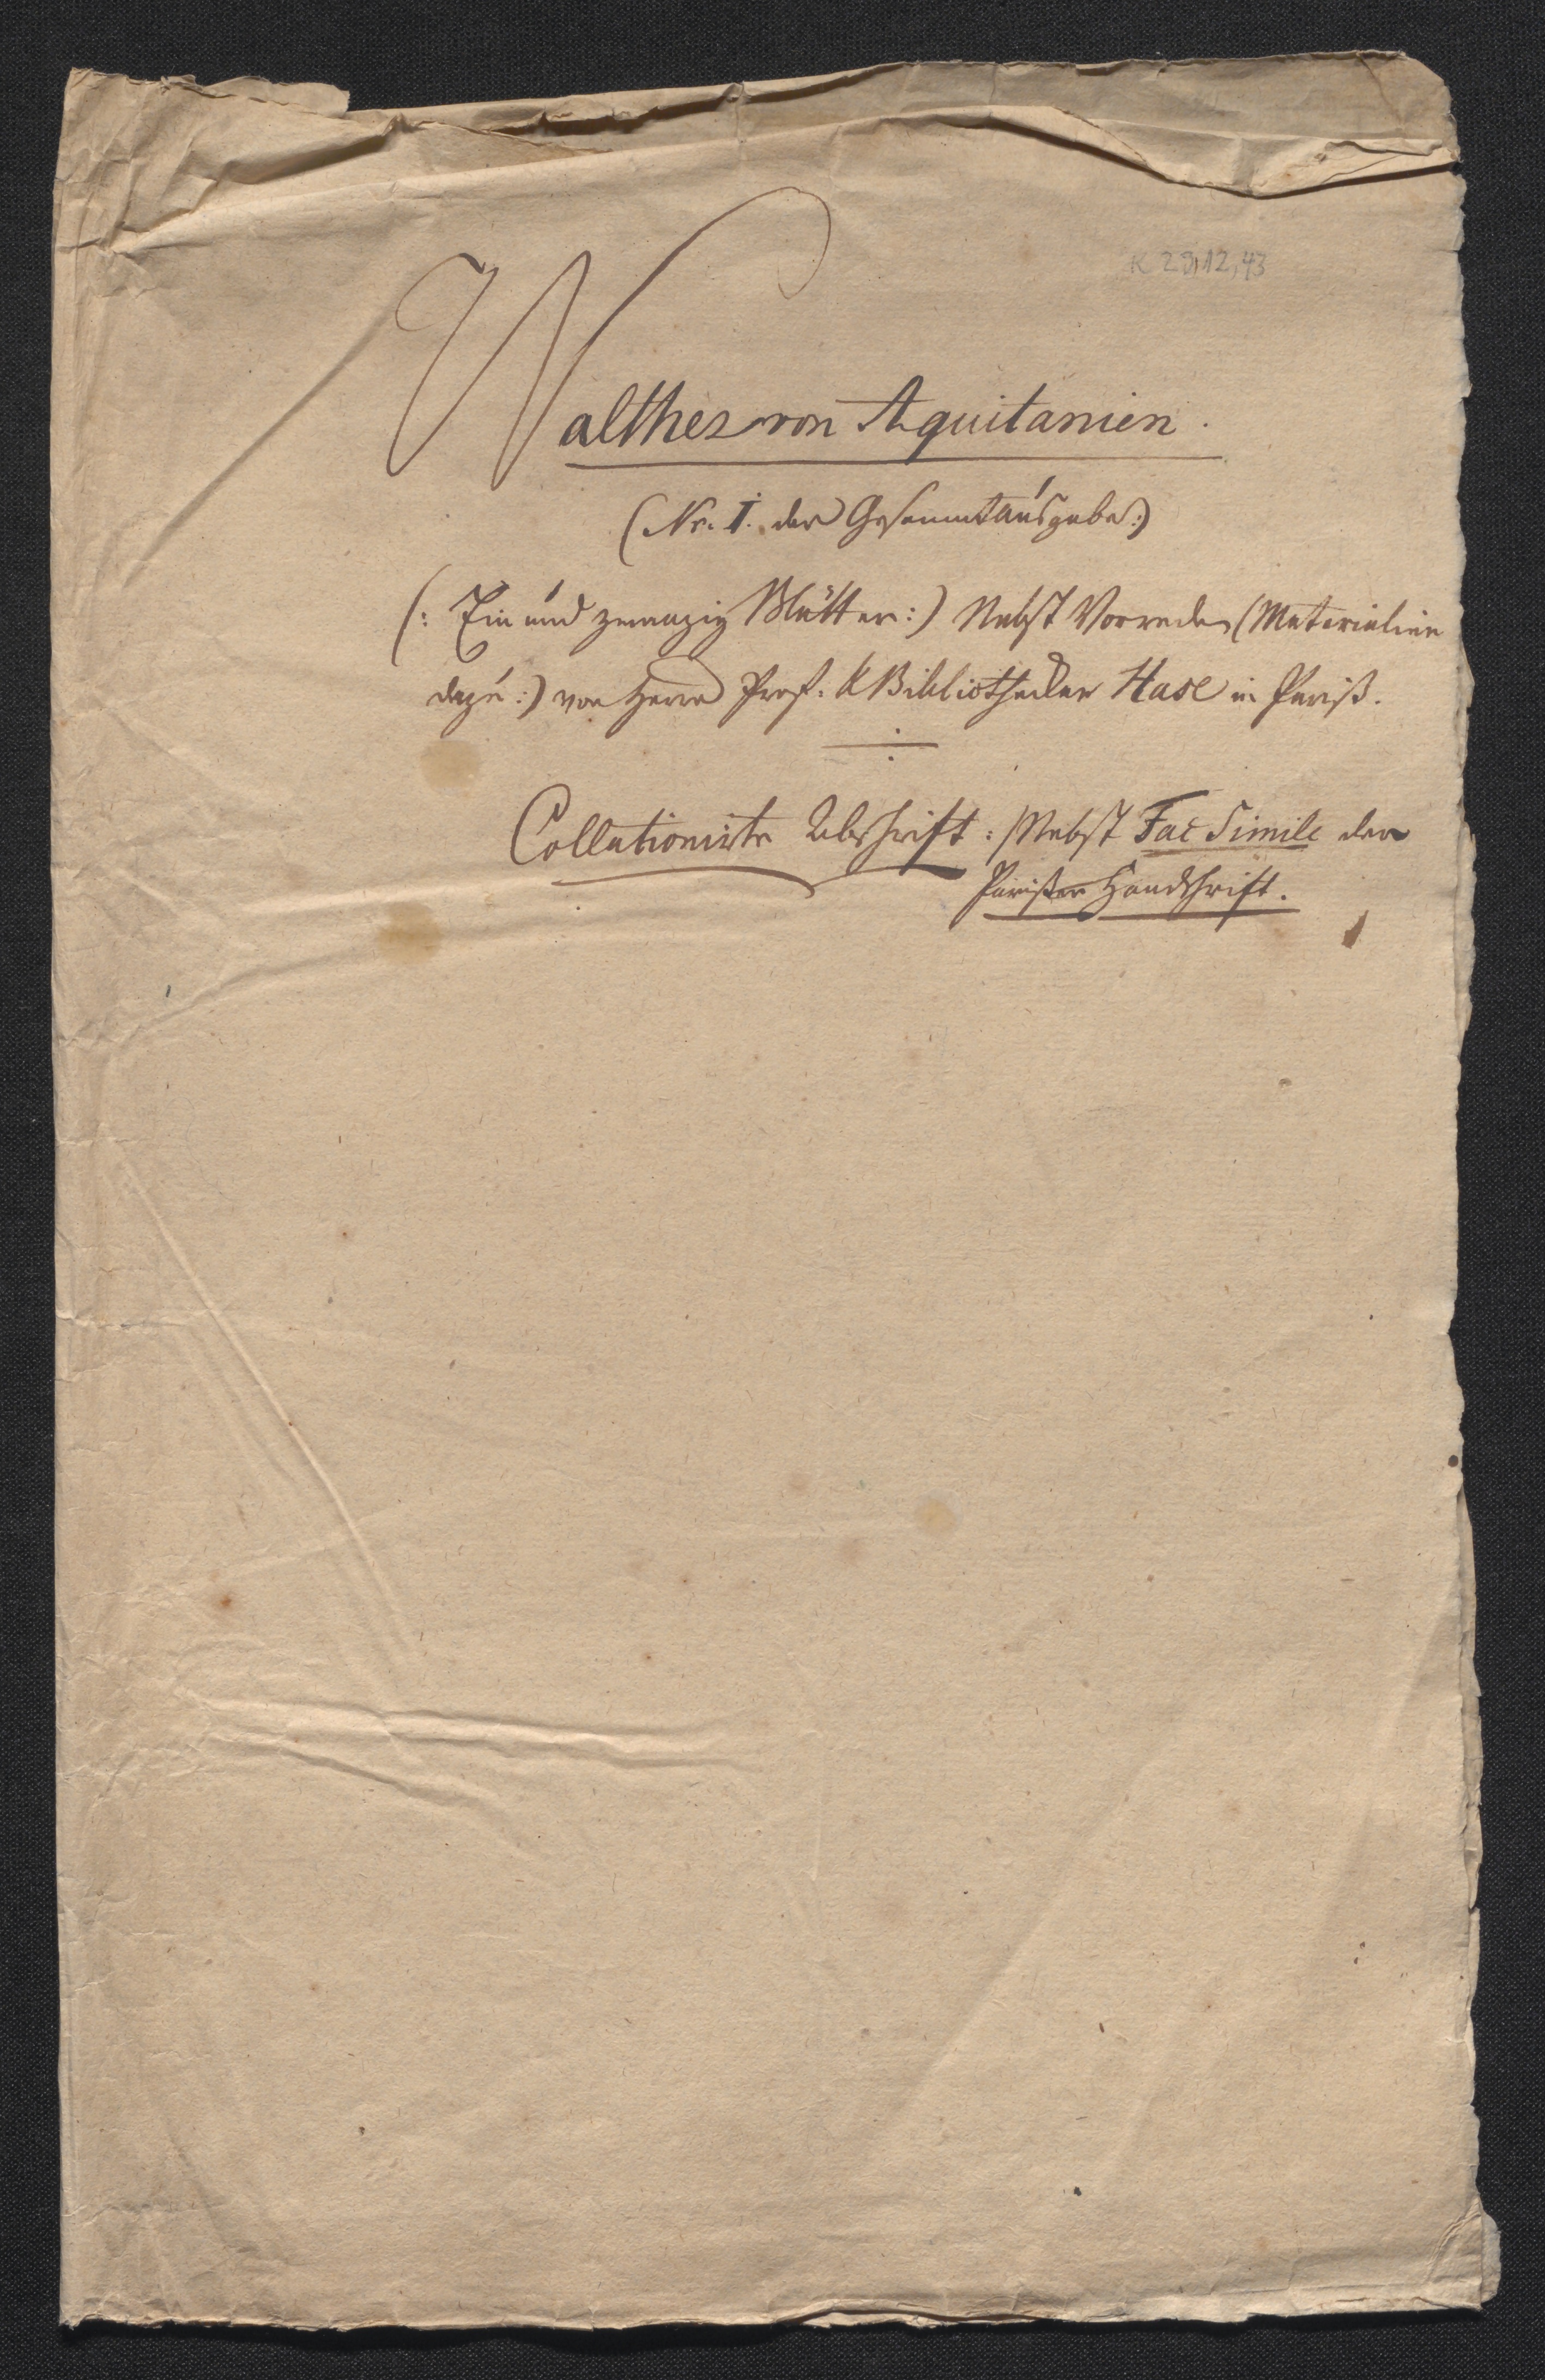 K 29,12,43
Walther von Aquitanien.
(Nr. I. der Gesammtausgabe:)
(: Ein und zwanzig Blätter:) Nebst Vorrede, (Materialien
dazu:) von Herrn Prof. & Bibliothekar Hase in Pariß.
Collationirte Abschrift: Nebst Fac Simile der
Parißer Handschrift.